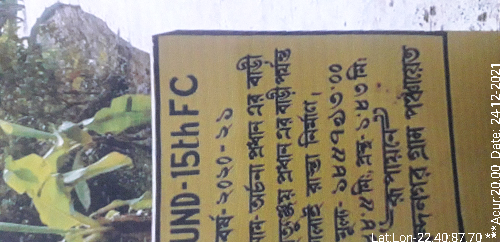 UND-15th F C
বর্ষ ২০২০-২১
অর্চনা প্রধান এর বাড়ী
প্রধান এর বাড়ী পর্যন্ত
ঢালাই রাস্তা নির্মাণ,
মূল্য- ১৮৫৭৭৩'০০
মি, প্রস্থ: ১'৮৩ মি:
রূপায়নে
গ্রাম পঞ্চায়েত
Lat Lon-22.40:87.70 **
Date: 24-12-2021